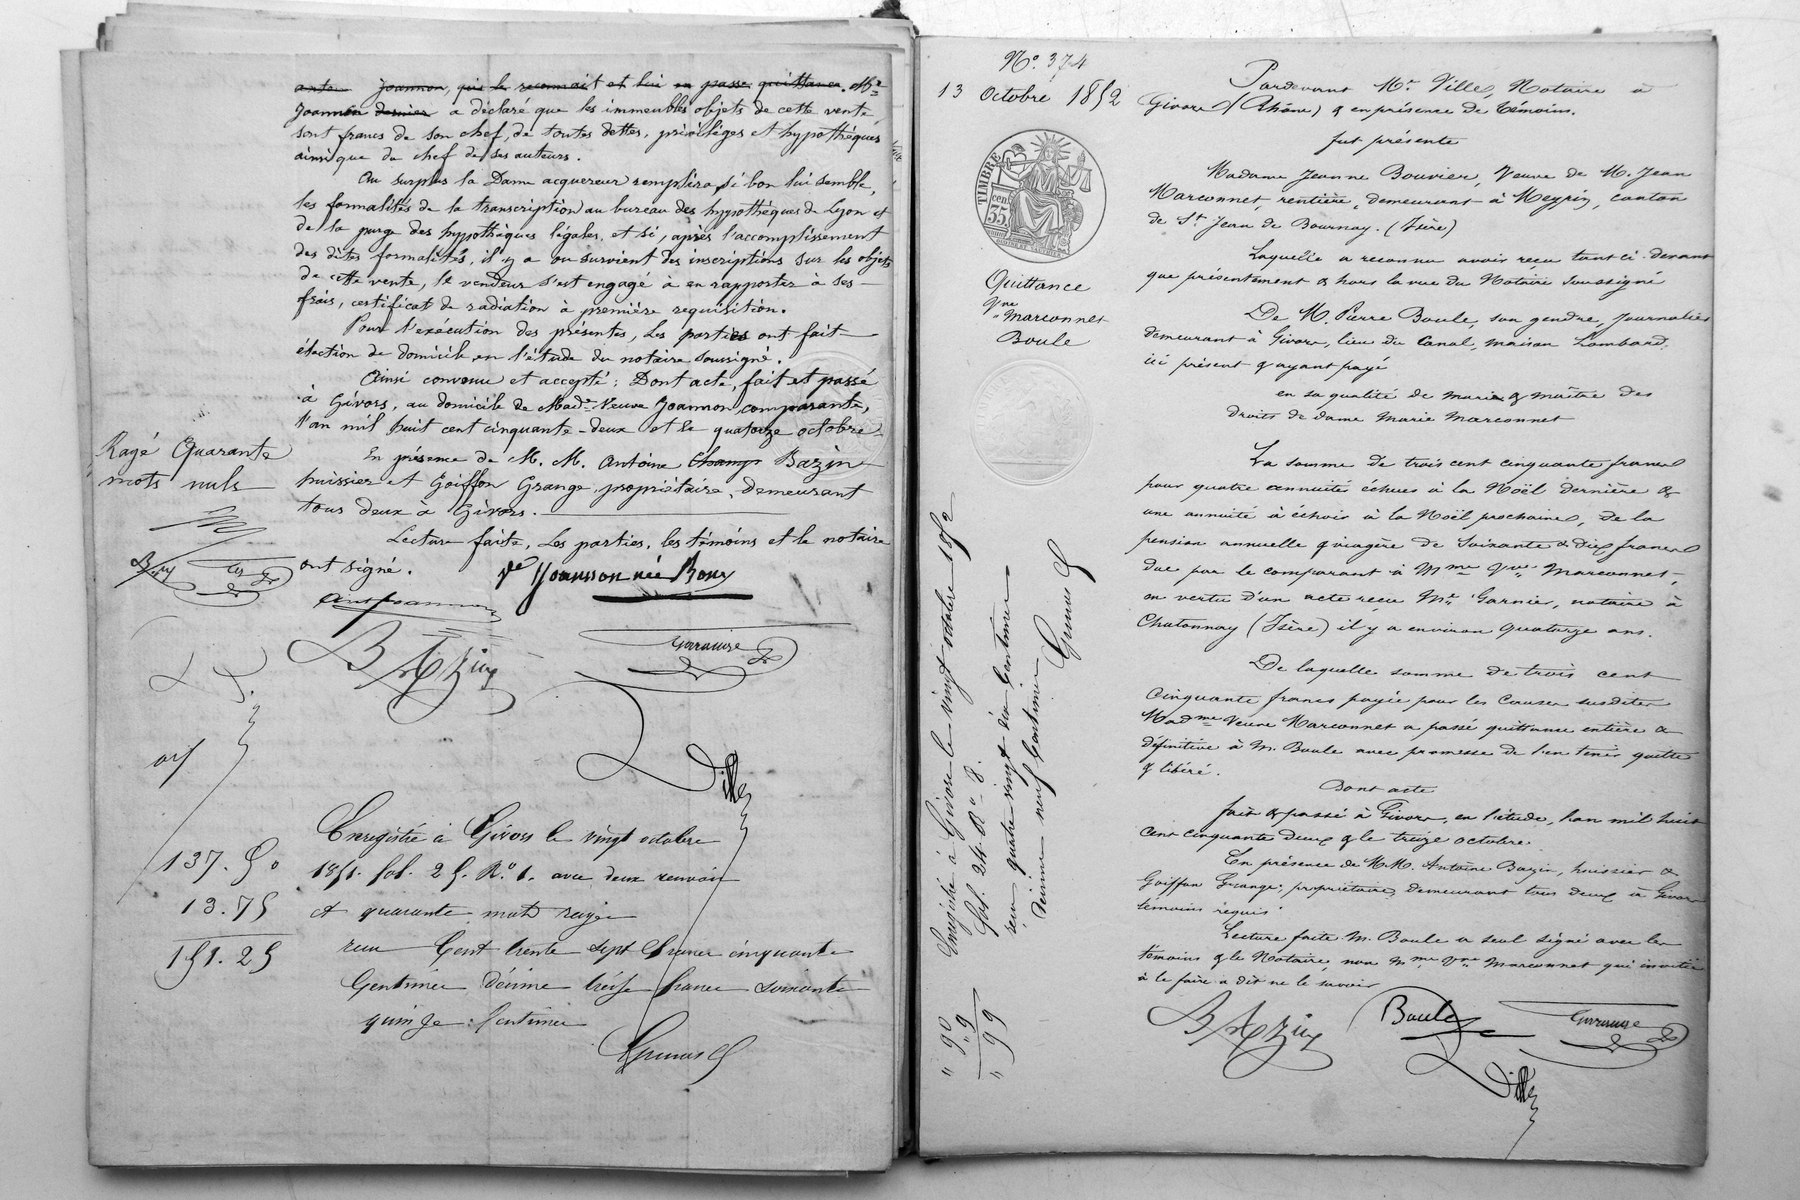 antin Joannon, qui le reconnait et lui en passe quittance. Mr
Joannon dernier a déclaré que les immeubles objets de cette vente
sont francs de son chef, de toutes dettes, privilèges et hypothèques
ainsi que du chef de ses auteurs.
Au surplus la Dame acquereur remplira, si bon lui semble,
les formalités de la transcription au bureau des hypothèques de Lyon et
de la purge des hypothèques légales, et si, après l'accomplissement
des dites formalités, il y a ou survient des inscriptions sur les objets
de cette vente, le vendeur s'est engagé à en rapporter à ses
frais, certificat de radiation à première requisition.
Pour l'exécution des présentes, les parties ont fait
élection de domicile en l'étude du notaire soussigné.
Ainsi convenu et accepté : Dont acte, fait et passé
à Givors, au domicile de Made Veuve Joannon, comparante,
l'an mil huit cent cinquante-deux et le quatorze octobre
En présence de M. M. Antoine Champ Bazin
huissier et Goiffon Grange, propriétaire, demeurant
tous deux à Givors.
Lecture faite, les parties, les témoins et le notaire
ont signé.
Rayé Quarante
mots nuls
Vve Joannon née Bony
Ant Joannon
BAZin
Ville
Enregistré à Givors le vingt octobre
1851. fol. 25. R.o 1. avec deux renvois
et quarante mots rayés
reçu Cent trente sept francs cinquante
Centimes décime treize francs soixante
quinze centimes
137.50
13.75
151.25
No. 374
13 Octobre 1852
TIMBRE
35
cen
Quittance
Vve Marconnet
Boule
Pardevant Me Ville, Notaire à
Givors (Rhône) & en présence de témoins.
fut présente
Madame Jeanne Bouvier, Veuve de M. Jean
Marconnet, rentière, demeurant à Meyrin, canton
de St Jean de Bournay. (Isère)
Laquelle a reconnu avoir reçu tant ci-devant
que présentement & hors la vue du Notaire soussigné
De M. Pierre Boule, son gendre, journalier
demeurant à Givors, lieu du Canal, maison Lombard,
ici présent & ayant payé
en sa qualité de mari & maître des
Droits de dame Marie Marconnet
La somme de trois cent cinquante francs
pour quatre annuités échues à la Noël dernière &
une annuité à échoir à la Noël prochaine, de la
pension annuelle & viagère de Soixante & dix francs
due par le comparant à Mme Vve Marconnet,
en vertu d'un acte reçu Me Garnier, notaire à
Chatonnay (Isère) il y a environ quatorze ans.
De laquelle somme de trois cent
cinquante francs payée pour les causes susdites
Madme Veuve Marconnet a passé quittance entière &
définitive à M. Boule avec promesse de l'en tenir quitte
& libéré.
Dont acte
fait & passé à Givors, en l'étude, l'an mil huit
cent cinquante deux & le treize octobre
En présence de M.M. Antoine Bazin, huissier &
Goiffon Grange, propriétaire, demeurant tous deux à Givors
témoins requis.
Lecture faite M. Boule a seul signé avec les
témoins & le Notaire, non Mme Vve Marconnet qui invitée
à le faire a dit ne le savoir
BAZin
Boule
Ville
Enregistré à Givors le vingt octobre 1852
fol. 24. Ro 8.
reçu quatre vingt dix Centimes
décime neuf Centimes
" 90
" 9
" 99